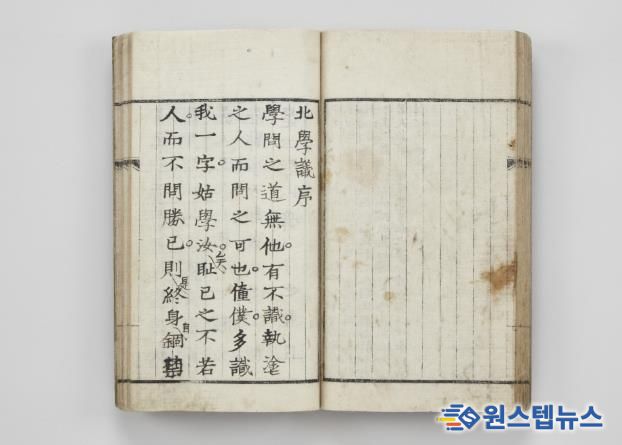 北學議序
學問之道無他有不識執塗
之人而問之可也僮僕多識
我一字姑學汝矣恥己之不若
人而不問勝己則是終身自錮
원스텝뉴스